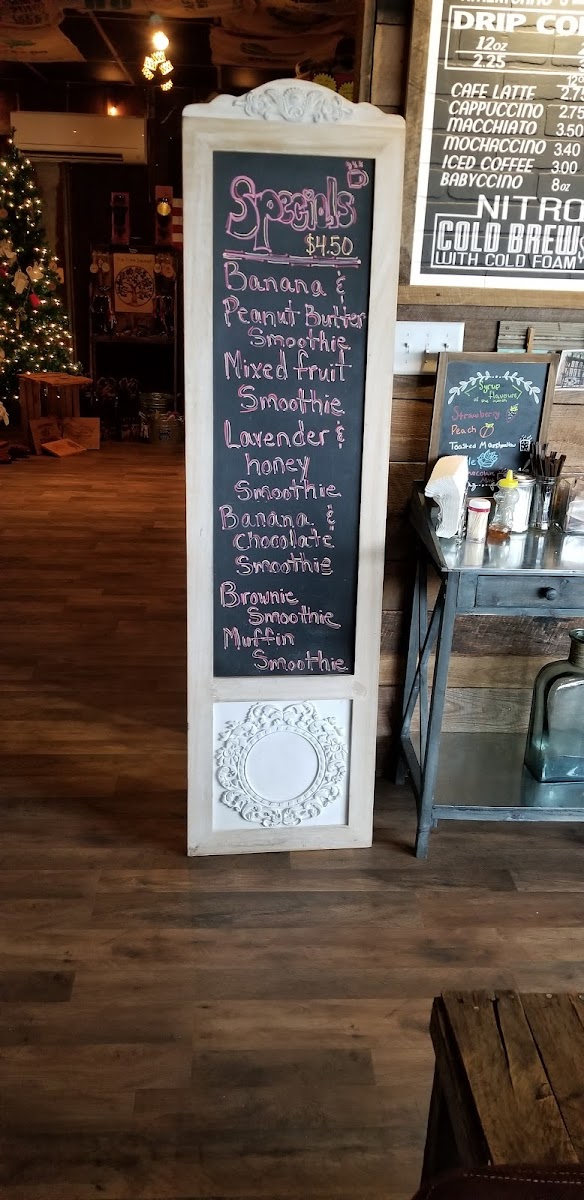 Specials
$4.50
Banana &
Peanut Butter
Smoothie
Mixed fruit
Smoothie
Lavender &
honey
Smoothie
Banana &
chocolate
Smoothie
Brownie
Smoothie
Muffin
Smoothie
DRIP CO
12oz
2.25 2
CAFE LATTE 2.75
CAPPUCCINO 2.75
MACCHIATO 3.50
MOCHACCINO 3.40
ICED COFFEE 3.00
BABYCCINO 8oz
NITRO
COLD BREW
WITH COLD FOAM
Syrup
flavours
Strawberry
Peach
Toasted Marshmallow